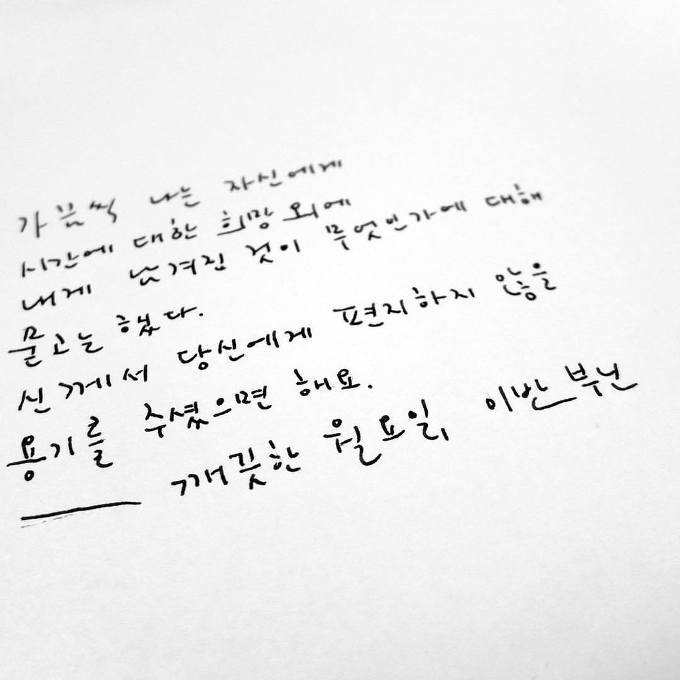 가끔씩 나는 자신에게
시간에 대한 희망 외에
내게 남겨진 것이 무엇인가에 대해
묻고는 했다.
신께서 당신에게 편지하지 않을
용기를 주셨으면 해요.
깨끗한 월요일, 이반 부닌